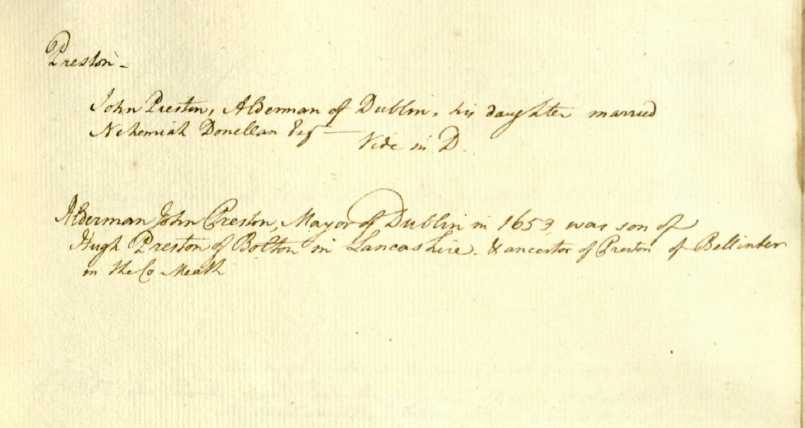 Preston –
John Preston, Alderman of Dublin, his daughter married
Nehemiah Donellan Esq — Vide in D.
Alderman John Preston, Mayor of Dublin in 1653, was son of
Hugh Preston of Bolton in Lancashire. & ancestor of Preston of Bellinter
in the Co Meath